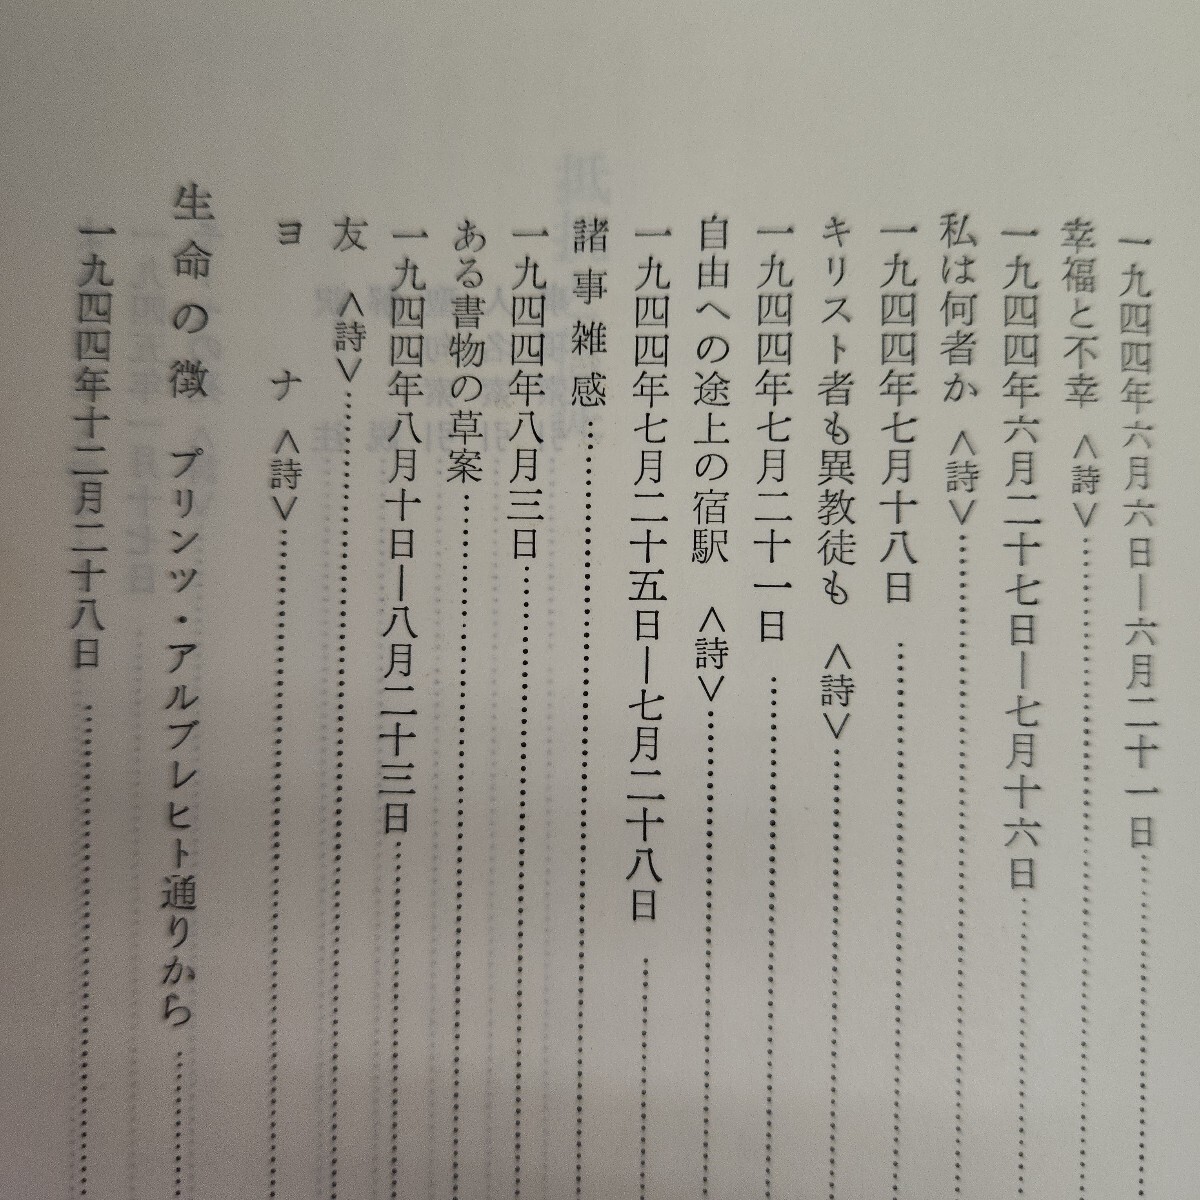 一九四四年六月六日―六月二十一日
幸福と不幸 <詩>
一九四四年六月二十七日―七月十六日
私は何者か <詩>
一九四四年七月十八日
キリスト者も異教徒も <詩>
一九四四年七月二十一日
自由への途上の宿駅 <詩>
一九四四年七月二十五日―七月二十八日
諸事雑感
一九四四年八月三日
ある書物の草案
一九四四年八月十日―八月二十三日
友 <詩>
ヨナ <詩>
生命の徴 プリンツ・アルブレヒト通りから
一九四四年十二月二十八日